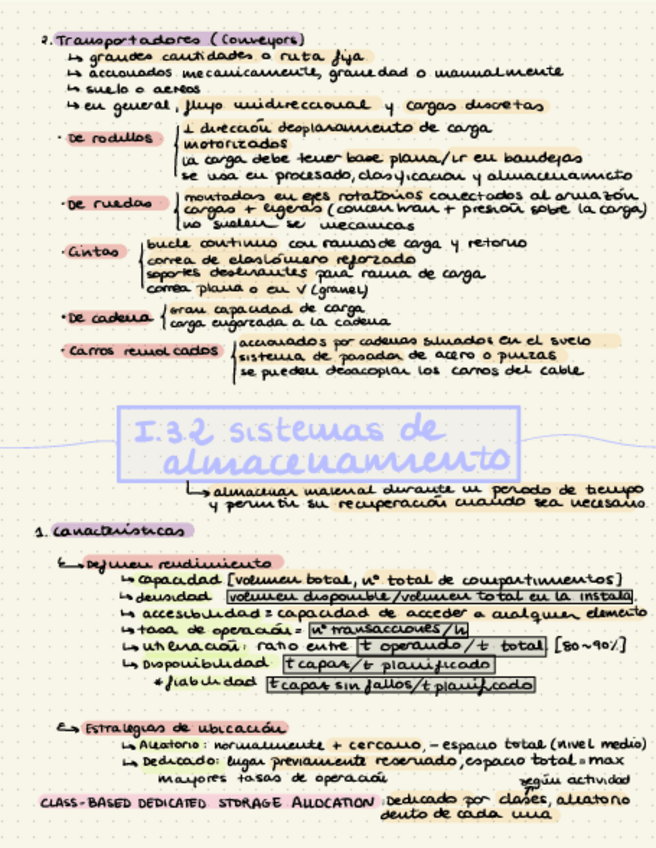 2. Transportadores (Conveyors)
↳ grandes cantidades o ruta fija
↳ accionados mecanicamente, gravedad o manualmente
↳ suelo o aereos
↳ en general, flujo unidireccional y cargas discretas
· De rodillos
⊥ dirección desplazamiento de carga
motorizados
la carga debe tener base plana/ir en bandejas
se usa en procesado, clasificación y almacenamiento
· De ruedas
montadas en ejes rotatorios conectados al armazón
cargas + ligeras (concentran + presión sobre la carga)
no suelen se mecanicas
· Cintas
bucle continuo con ramas de carga y retorno
correa de elastómero reforzado
soportes deslizantes para rama de carga
correa plana o en V (granel)
· De cadena
Gran capacidad de carga
carga engarzada a la cadena
· Carros remolcados
accionados por cadenas situados en el suelo
sistema de pasador de acero o pinzas
se pueden desacoplar los carros del cable
I.3.2 sistemas de
almacenamiento
↳ almacenar material durante un periodo de tiempo
y permitir su recuperación cuando sea necesario
1. Características
↳ Definen rendimiento
↳ capacidad [volumen total, nº total de compartimentos]
↳ densidad volumen disponible/volumen total en la instala.
↳ accesibilidad = capacidad de acceder a cualquier elemento
↳ tasa de operación = nº transacciones/h
↳ utilización: ratio entre t operando/t total [80~90%]
↳ Disponibilidad t capaz/t planificado
* fiabilidad t capaz sin fallos/t planificado
↳ Estrategias de ubicación
↳ Aleatorio: normalmente + cercano, - espacio total (nivel medio)
↳ Dedicado: lugar previamente reservado, espacio total = max
mayores tasas de operación
según actividad
CLASS-BASED DEDICATED STORAGE ALLOCATION: Dedicado por clases, aleatorio
dento de cada una